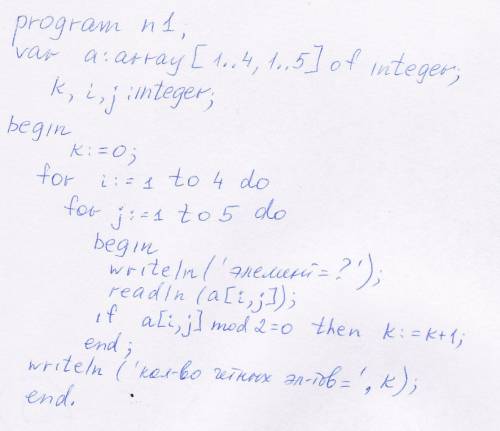 program n1;
var a: array [1..4, 1..5] of integer;
k, i, j :integer;
begin
k:=0;
for i:=1 to 4 do
for j:=1 to 5 do
begin
writeln('элемент=?');
readln (a[i,j]);
if a[i,j] mod 2=0 then k:=k+1;
end;
writeln ('кол-во четных эл-тов=', k);
end.